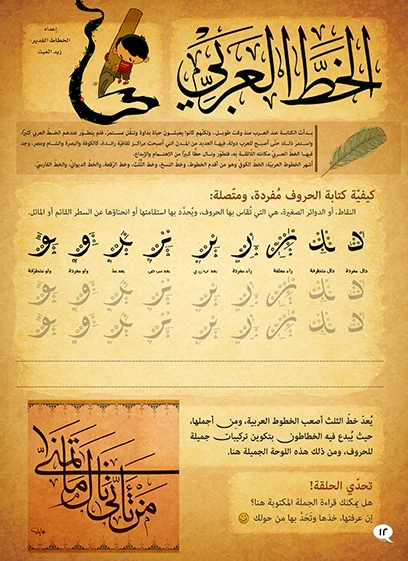 إعداد
الخطاط القدير:
زيد الغيث
الخطّ العربيّ
بدأت الكتابة عند العرب منذ وقت طويل، ولكنّهم كانوا يعيشون حياة بداوة وتنقّل مستمرّ، فلم يتطوّر عندهم الخط العربي كثيرًا،
واستمرّ ذلك حتّى أصبح للعرب دولة، فيها العديد من المدن التي أصبحت مراكز ثقافية رائدة، كالكوفة والبصرة والشام ومصر، وجد
فيها الخط العربيّ مكانته اللائقة به، فتطوّر ونال حظًّا كبيرًا من الاهتمام والإبداع.
أشهر الخطوط العربية: الخط الكوفي وهو من أقدم الخطوط، وخط النسخ، وخط الثلث، وخط الرقعة، والخط الديواني، والخط الفارسيّ.
كيفيّة كتابة الحروف مُفردة، ومتّصلة:
النقاط، أو الدوائر الصغيرة، هي التي تُقاس بها الحروف، ويُحدَّد بها استقامتها أو انحناؤها عن السطر القائم أو المائل.
دال مفردة دال متطرفة راء معلقة راء مفردة بعد ب ي بعد س ص بعد مد واو مفردة واو متطرفة
يُعدّ خطّ الثلث أصعب الخطوط العربية، ومن أجملها،
حيث يُبدع فيه الخطاطون بتكوين تركيبات جميلة
للحروف، ومن ذلك هذه اللوحة الجميلة هنا.
من تأنّى نال ما تمنّى
تحدّي الحلقة!
هل يمكنك قراءة الجملة المكتوبة هنا؟
إن عرفتها، خذها وتحدَّ بها من حولك
١٢